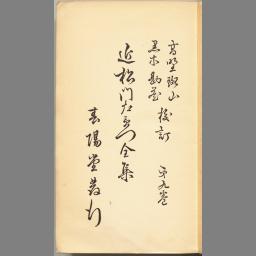 高野班山
黒木勘蔵 校訂
第九巻
近松門左衛門全集
春陽堂発行